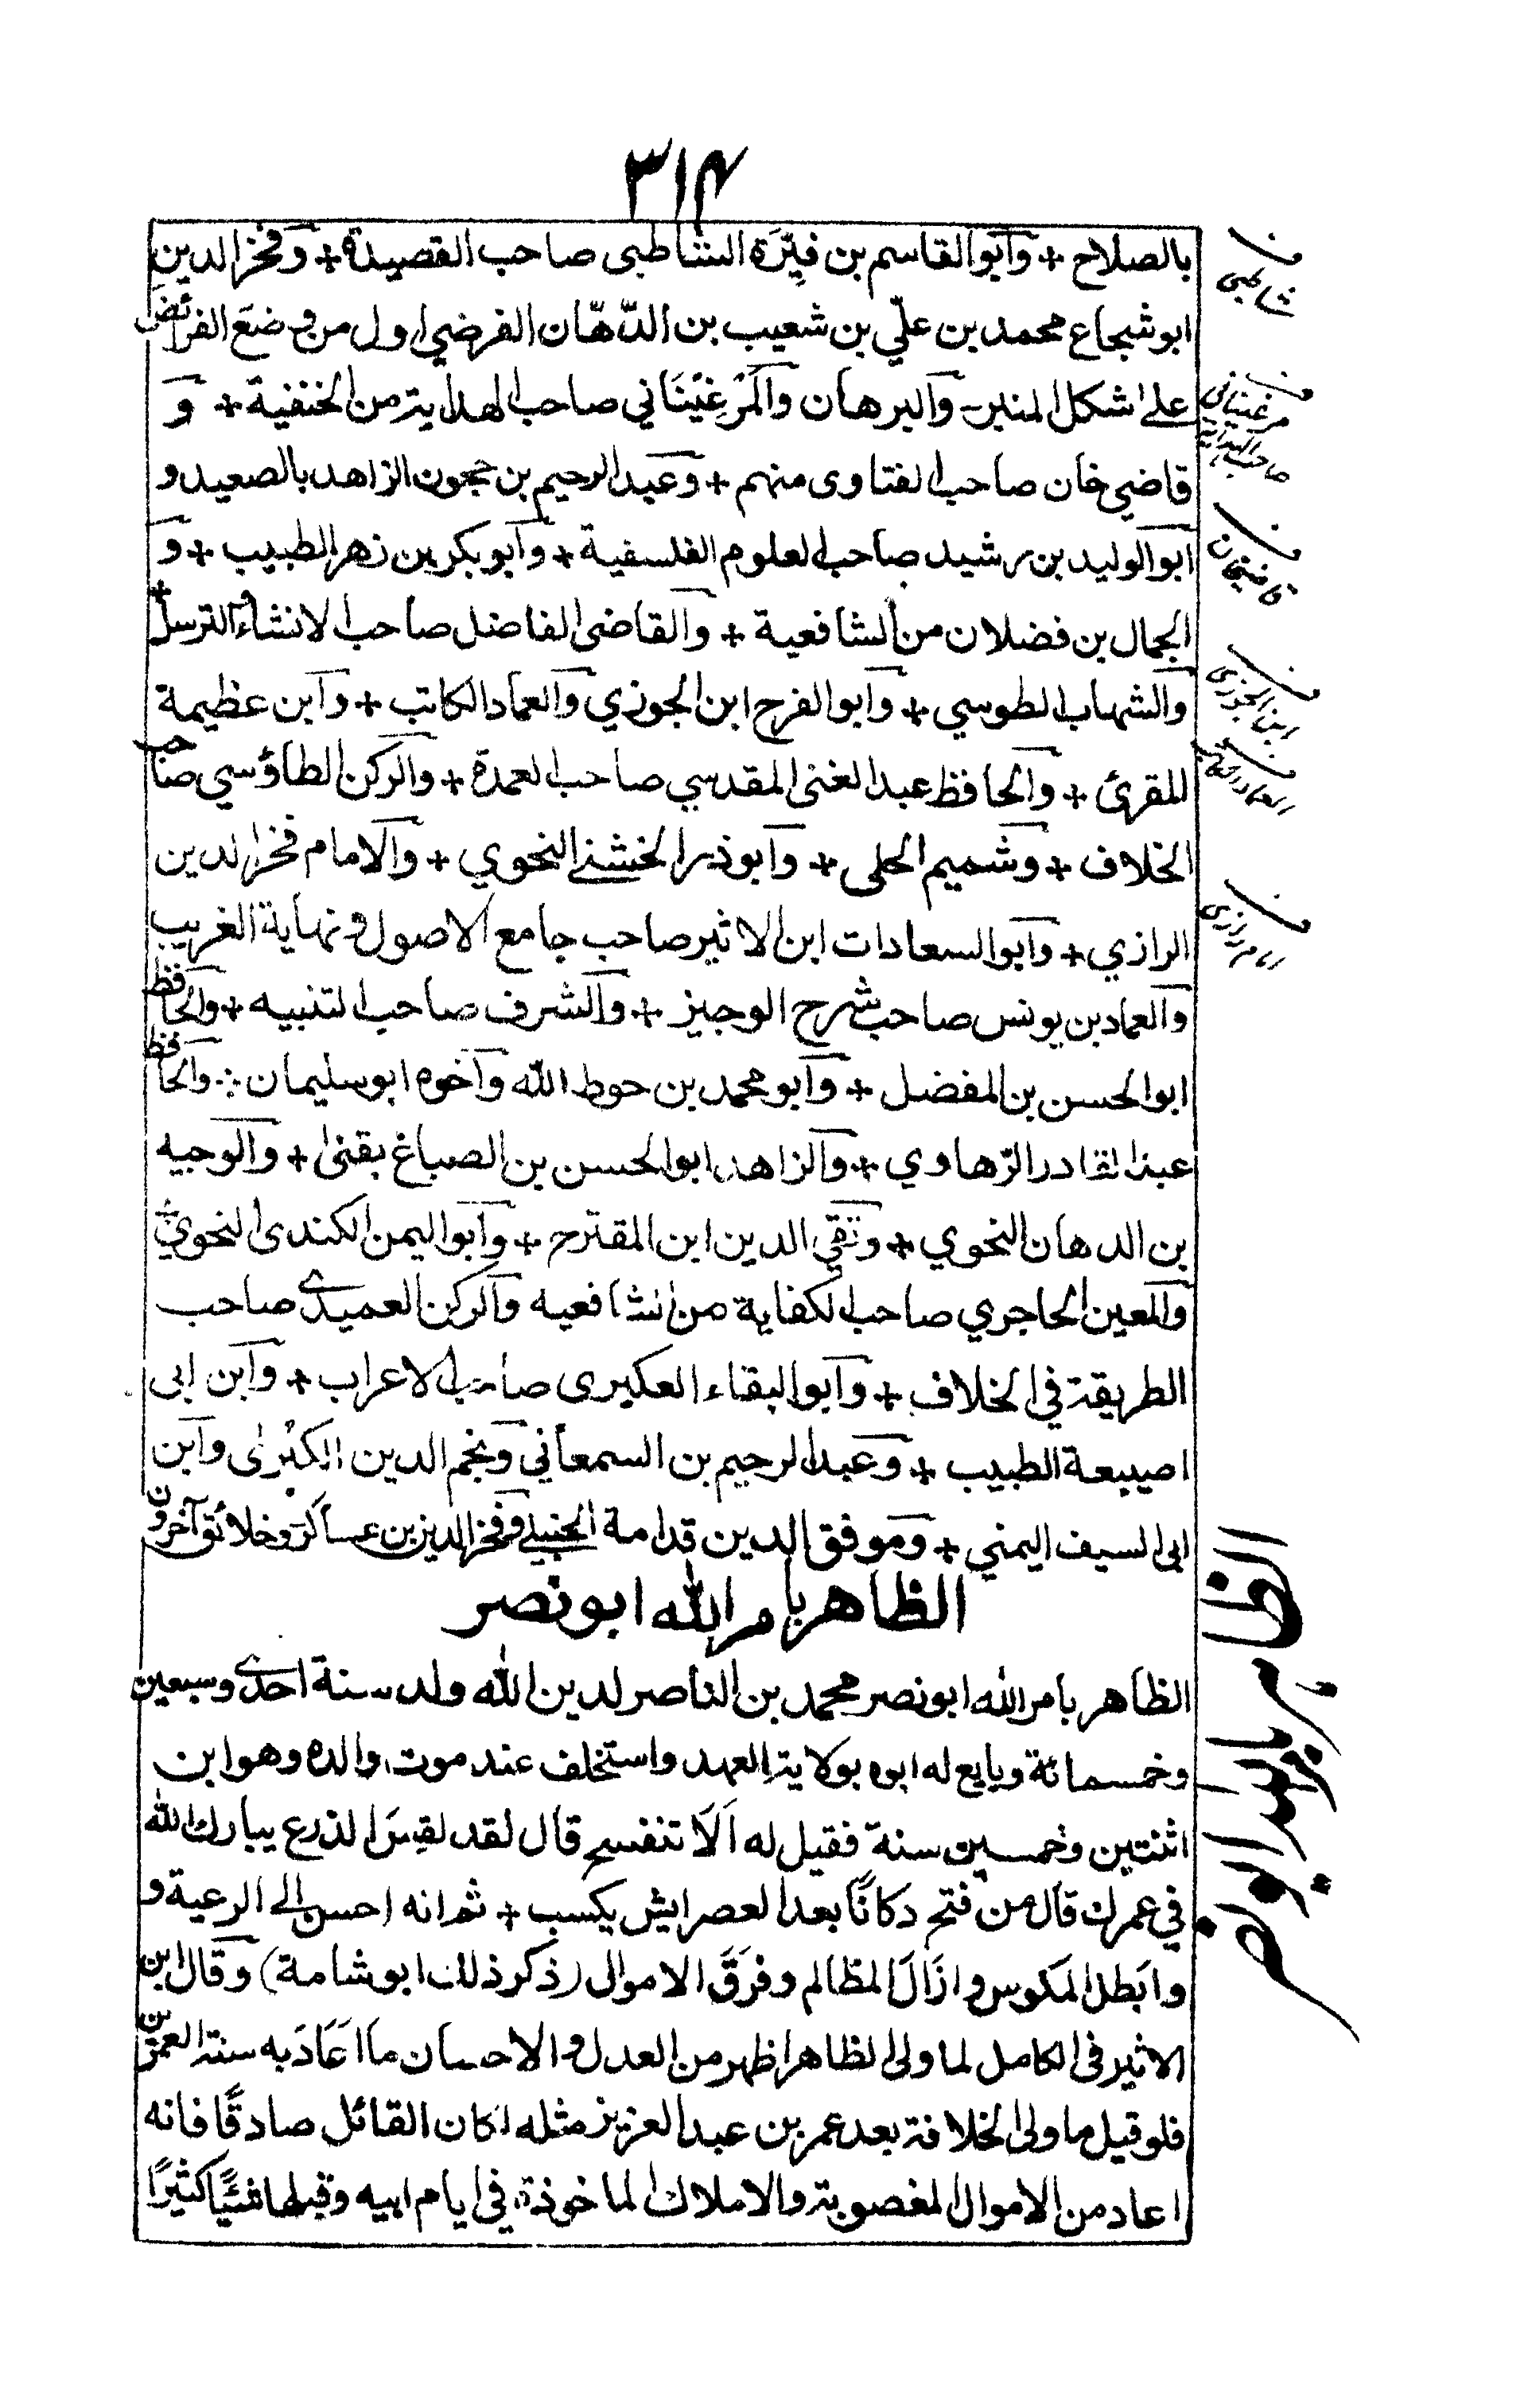 ٣١٤
بالصلاح + وابو القاسم بن فِيَّرَة الشاطبى صاحب القصيدة + وفخر الدين
ابو شجاع محمد بن علّي بن شعيب بن الدّهّان الفرضي اول من وضعَ الفرائضَ
على اشكل المنبر - والبرهان والمَرْغِيْنَاني صاحب الهداية من الحنفية + و
قاضي خان صاحب الفتاوى منهم + وعبد الرحيم بن حجون الزاهد بالصعيد و
ابو الوليد بن رشيد صاحب العلوم الفلسفية + وابو بكر بن زهر الطبيب + و
الجمال بن فضلان من الشافعية + والقاضى الفاضل صاحب الانشاء والترسل +
والشهاب الطوسي + وابو الفرج ابن الجوزي والعماد الكاتب + وابن عظيمة
المقرئ + والحافظ عبد الغنى المقدسي صاحب العمدة + والركن الطاؤسي صاحب
الخلاف + وشميم الحلى + وابو ذر الخشنے النحوي + والامام فخر الدين
الرازي + وابو السعادات ابن الاثير صاحب جامع الاصول و نهاية الغريب
والعماد بن يونس صاحب شرح الوجيز + والشرف صاحب التنبيه + والحافظ
ابو الحسن بن المفضل + وابو محمد بن حوط الله واخوه ابو سليمان ؞ والحافظ
عبد القادر الرّهاوي + والزاهد ابو الحسن بن الصباغ بقنى + والوجيه
بن الدهان النحوي + وتقي الدين ابن المقترح + وابو اليمن الكندى النحويّ
والمعين الحاجري صاحب الكفاية من الشافعيه والركن العميدي صاحب
الطريقة في الخلاف + وابو البقاء العكيرى صاحب الاعراب + وابن ابى
اصيبعة الطبيب + وعبد الرحيم بن السمعاني ونجم الدين الكُبْرٰى وابن
ابى السيف اليمني + وموفق الدين قدامة الحنبلے و فخر الدين بن عساكر وخلائق آخرون
الظاهر بامر الله ابو نصر
الظاهر بامر الله ابو نصر محمد بن الناصر لدين الله ولد سنة احدى وسبعين
وخمسمائة وبايع له ابوه بولاية العهد واستخلف عند موت والده وهو ابن
اثنتين وخمسين سنة فقيل له اَلَا تنفسح قال لقد لقِسَ الذرع يبارك الله
في عمرك قال من فتح دكانًا بعد العصر ايش يكسب + ثم انه احسن الى الرعية و
وابَطل المكوس وازَالَ المظالم وفرَقَ الاموال (ذكر ذلك ابو شامة) وقال ابن
الاثير فى الكامل لما ولى الظاهر اظهر من العدل والاحسان ما اعَادَ به سنة العمرين
فلو قيل ما ولى الخلافة بعد عمر بن عبد العزيز مثله لكان القائل صادقًا فانه
اعاد من الاموال المغصوبة والاملاك الماخوذة في ايام ابيه وقبلها شئًا كثيرًا
شاطبى
مرغينانى
صاحب الهدايه
قاضيخان
ابن الجوزى
العماد الكاتب
رازى
الظاهر بامر الله ابو نصر